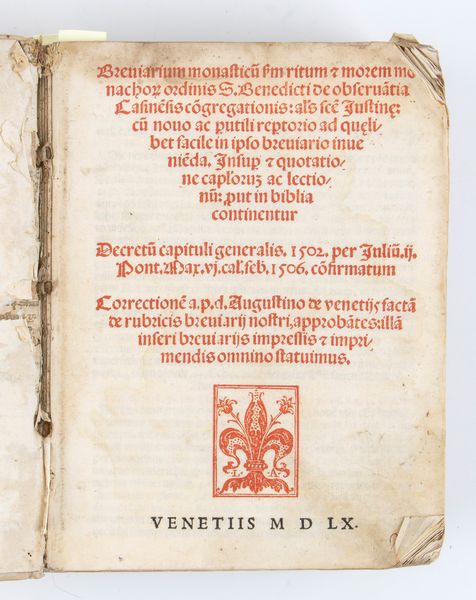 Breviarium monasticū ſm ritum ⁊ morem mo
nachoꝝ ordinis S. Benedicti de obſeruātia
Caſinēſis cōgregationis: als̄ ſcē Juſtinę:
cū nouo ac ꝑutili reꝑtorio ad quęli⸗
bet facile in ipſo breuiario inue
niēda. Inſuꝑ ⁊ quotatio⸗
ne capl'oruꝫ ac lectio⸗
nū: ꝓut in biblia
continentur
Decretū capituli generalis. 1502. per Juliū.ij.
Pont. Max. vj. cal. feb. 1506. cōfirmatum
Correctionē a.p.d. Auguſtino de venetijs factā
de rubricis breuiarij noſtri, approbātes: illā
inſeri breuiarijs impreſſis ⁊ impri⸗
mendis omnino ſtatuimus.
L. A.
VENETIIS M D LX.